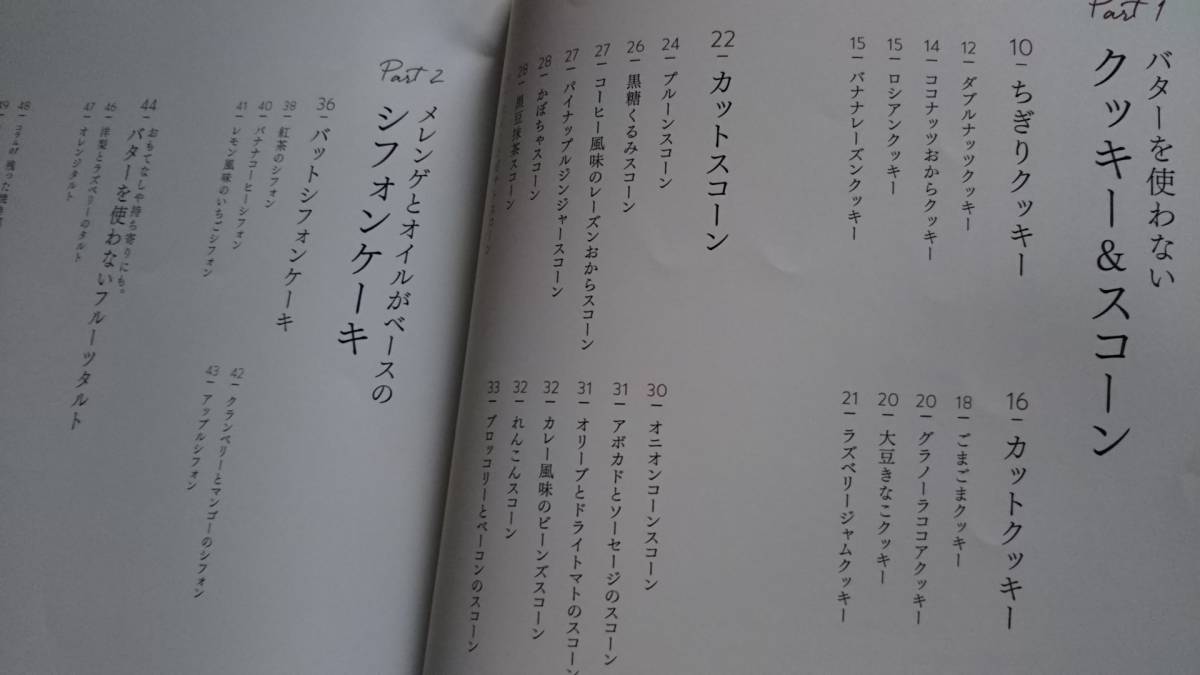 Part 1
バターを使わない
クッキー&スコーン
10 ちぎりクッキー
12 ダブルナッツクッキー
14 ココナッツおからクッキー
15 ロシアンクッキー
15 バナナレーズンクッキー
16 カットクッキー
18 ごまごまクッキー
20 グラノーラココアクッキー
20 大豆きなこクッキー
21 ラズベリージャムクッキー
22 カットスコーン
24 プルーンスコーン
26 黒糖くるみスコーン
27 コーヒー風味のレーズンおからスコーン
27 パイナップルジンジャースコーン
28 かぼちゃスコーン
28 黒豆抹茶スコーン
30 オニオンコーンスコーン
31 アボカドとソーセージのスコーン
31 オリーブとドライトマトのスコーン
32 カレー風味のビーンズスコーン
32 れんこんスコーン
33 ブロッコリーとベーコンのスコーン
Part 2
メレンゲとオイルがベースの
シフォンケーキ
36 バットシフォンケーキ
38 紅茶のシフォン
40 バナナコーヒーシフォン
41 レモン風味のいちごシフォン
42 クランベリーとマンゴーのシフォン
43 アップルシフォン
おもてなしや持ち寄りにも。
44 バターを使わないフルーツタルト
46 洋梨とラズベリーのタルト
47 オレンジタルト
48 コラム 残った
49